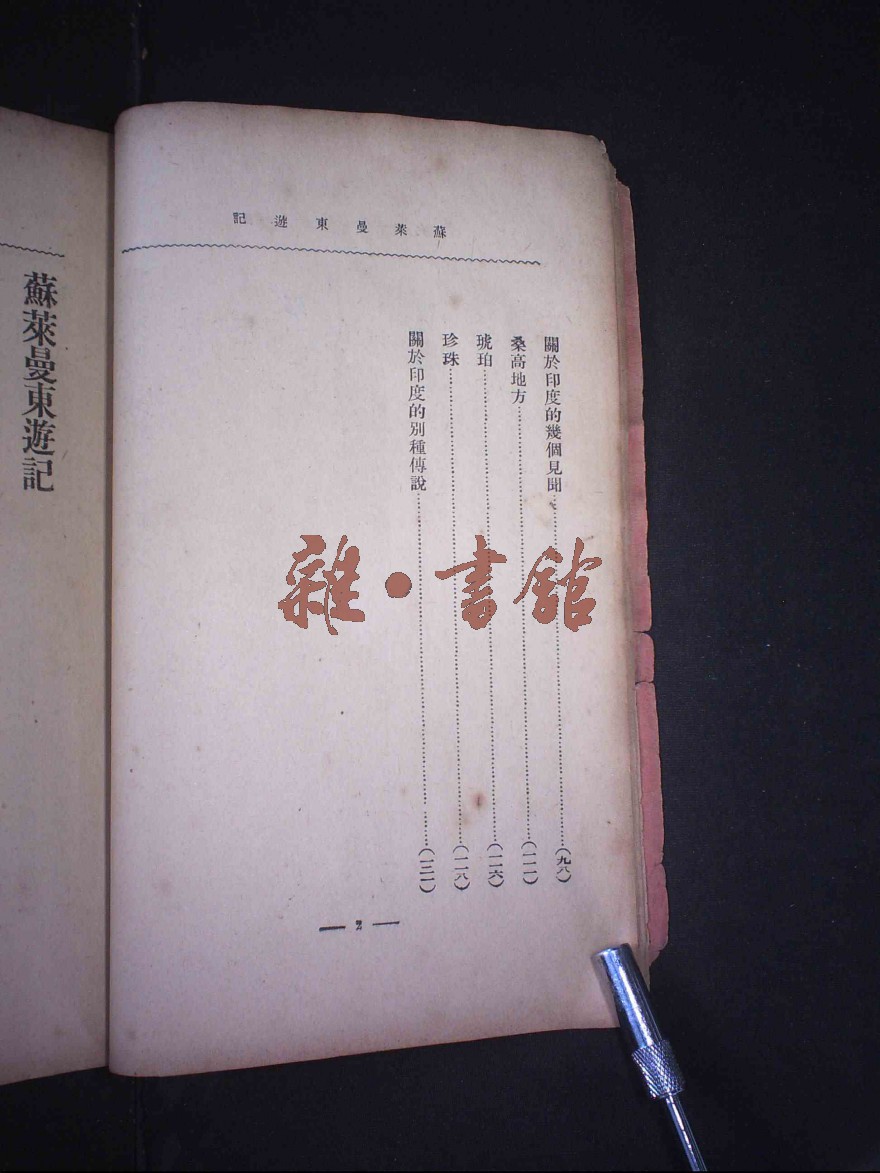 蘇萊曼東遊記
關於印度的幾個見聞……(九八)
桑高地方……(一一一)
琥珀……(一一六)
珍珠……(一一八)
關於印度的別種傳說……(一三一)
蘇萊曼東遊記
雜·書館